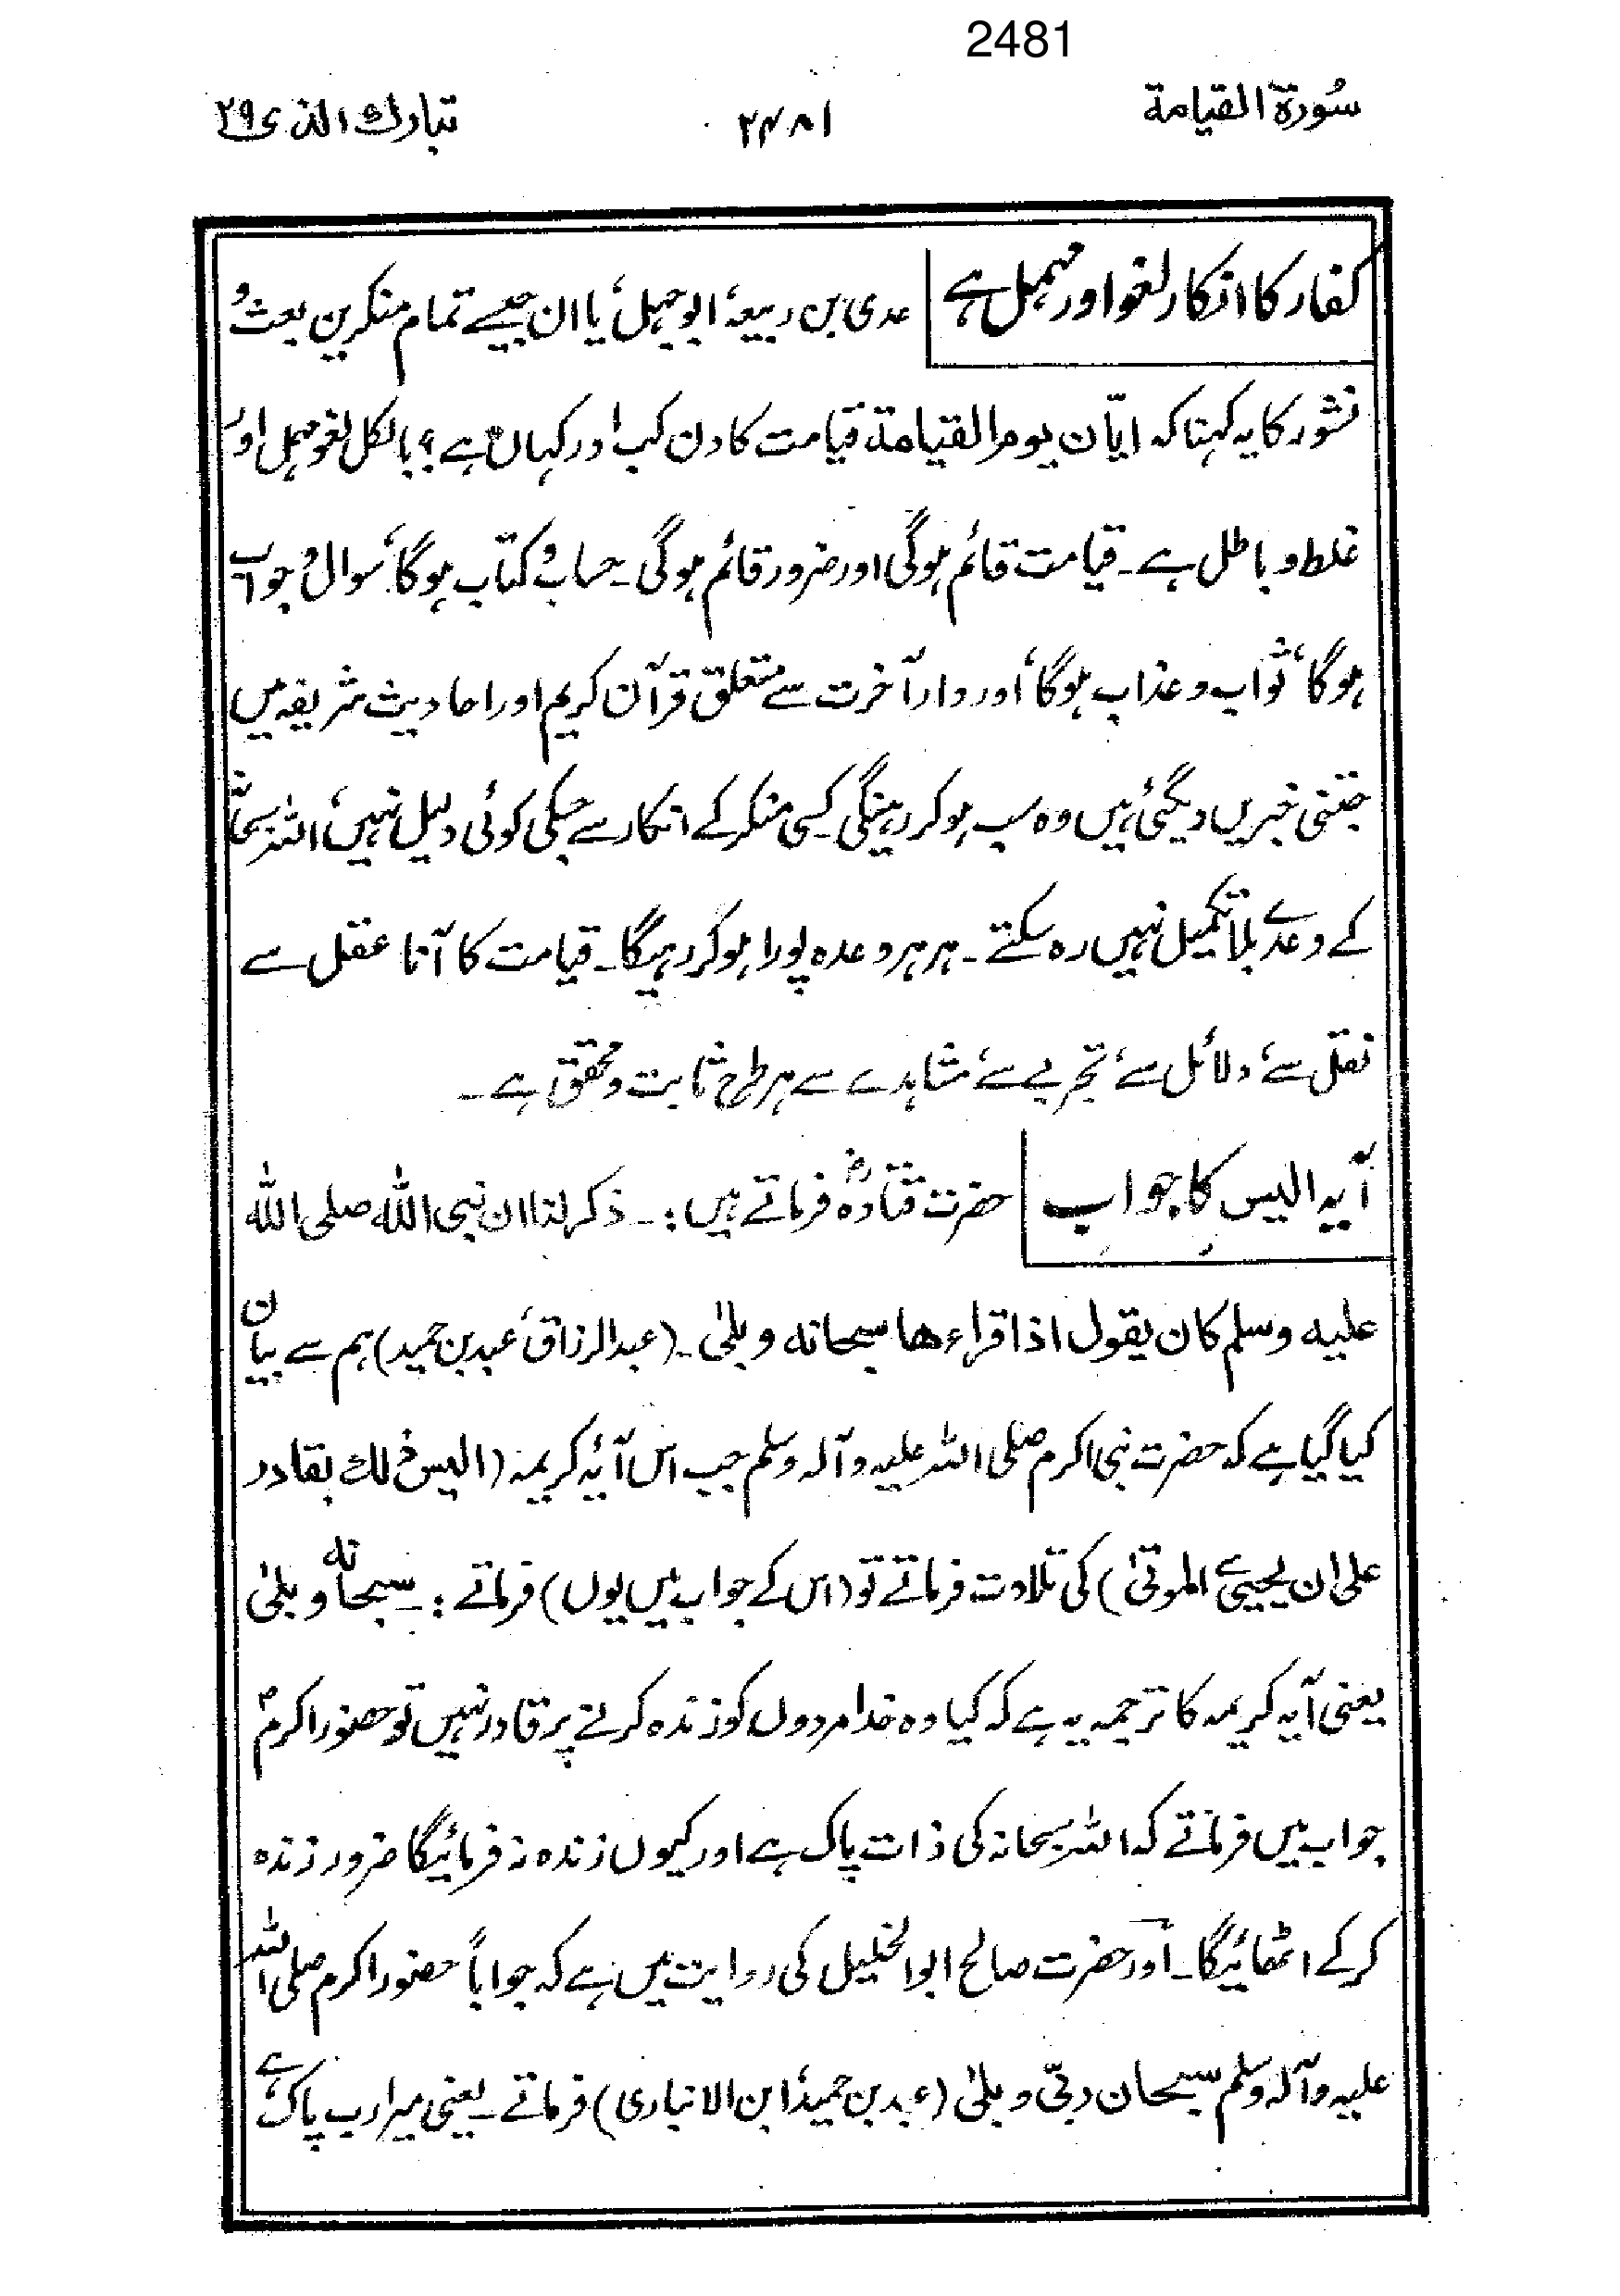 2481
سُورة القيامة ۲۴۸۱ تبارك الذی ۲۹
کفار کا انکار لغو اور مہمل ہے عدی بن ربیعہ، ابوجہل، یا ان جیسے تمام منکرین بعث و
نشور کا یہ کہنا کہ ایّان یوم القیامة قیامت کا دن کب اور کہاں ہے؟ بالکل لغو مہمل اور
غلط و باطل ہے۔ قیامت قائم ہوگی اور ضرور قائم ہوگی۔ حساب و کتاب ہوگا، سوال و جواب
ہوگا، ثواب و عذاب ہوگا، اور دار آخرت سے متعلق قرآن کریم اور احادیث شریفہ میں
جتنی خبریں دیگئی ہیں وہ سب ہو کر رہینگی۔ کسی منکر کے انکار سے جسکی کوئی دلیل نہیں، اللہ سبحانہٗ
کے وعدے بلا تکمیل نہیں رہ سکتے۔ ہر ہر وعدہ پورا ہو کر رہیگا۔ قیامت کا آنا عقل سے
نقل سے، دلائل سے، تجربے سے، مشاہدے سے ہر طرح ثابت و محقق ہے۔
آیہ الیس کا جواب حضرت قتادہؓ فرماتے ہیں:۔ ذکر لنا ان نبی الله صلی الله
علیه وسلم کان یقول اذا قراءها سبحانه و بلیٰ۔ (عبدالرزاق، عبد بن حمید) ہم سے بیان
کیا گیا ہے کہ حضرت نبی اکرم صلی اللہ علیہ و آلہ وسلم جب اس آیۂ کریمہ (الیس ذلك بقادر
علی ان یحییَ الموتیٰ) کی تلاوت فرماتے تو (اس کے جواب میں یوں) فرماتے :۔ سبحانه و بلیٰ
یعنی آیہ کریمہ کا ترجمہ یہ ہے کہ کیا وہ خدا مردوں کو زندہ کرنے پر قادر نہیں تو حضور اکرمؐ
جواب میں فرماتے کہ اللہ سبحانہ کی ذات پاک ہے اور کیوں زندہ نہ فرمائیگا ضرور زندہ
کر کے اٹھائیگا۔ اور حضرت صالح ابو الخلیل کی روایت میں ہے کہ جواباً حضور اکرم صلی اللہ
علیہ وآلہ وسلم سبحان ربّی و بلیٰ (عبد بن حمید، ابن الانباری) فرماتے۔ یعنی میرا رب پاک ہے